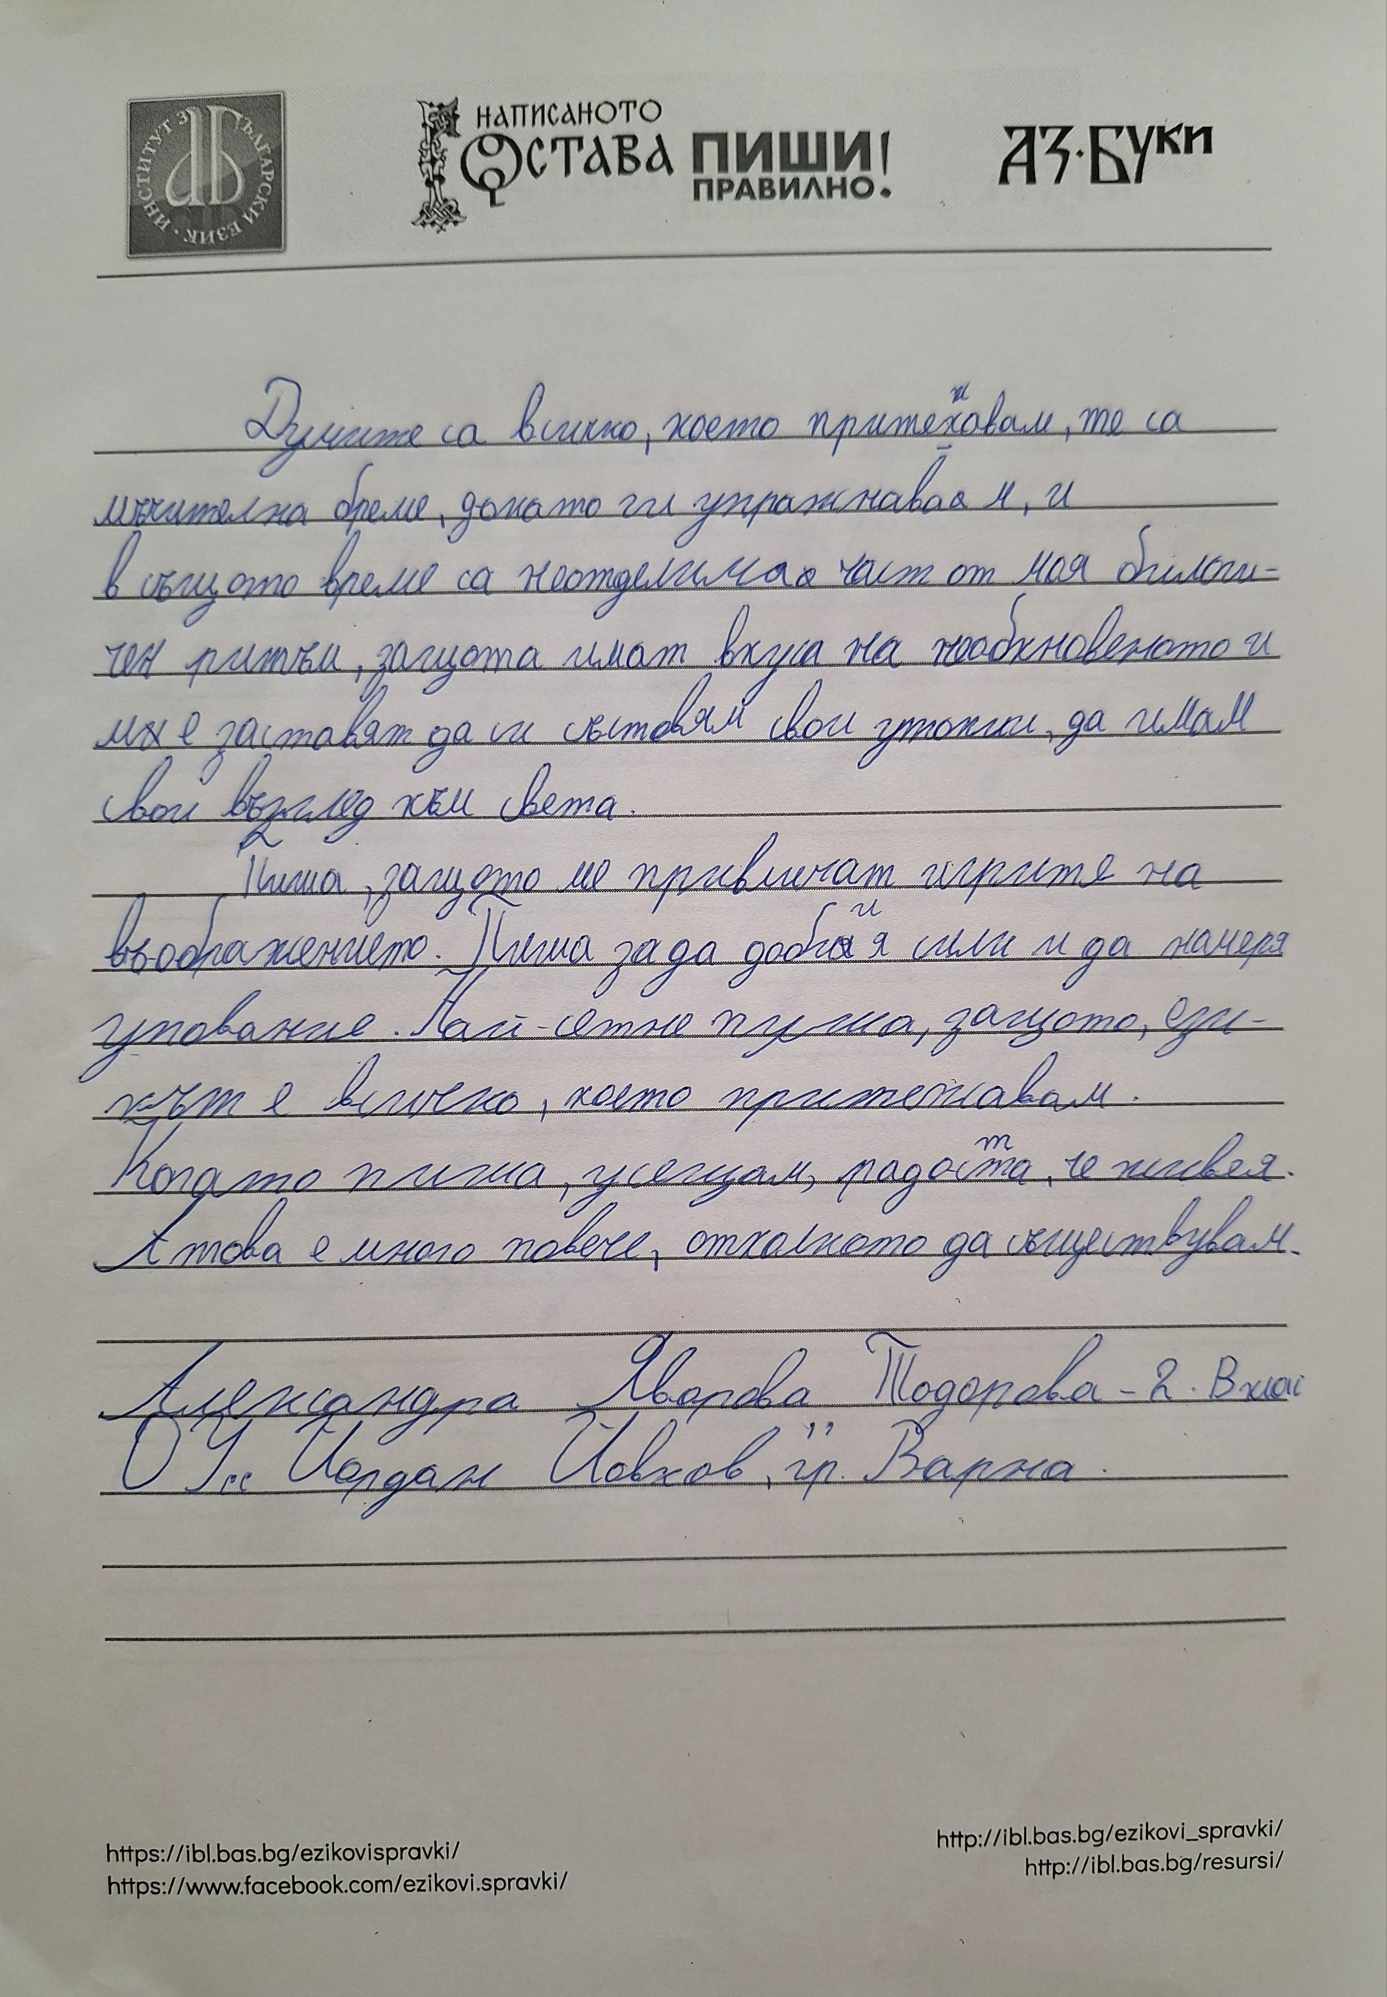 ИНСТИТУТ ЗА БЪЛГАРСКИ ЕЗИК
НАПИСАНОТО
ОСТАВА ПИШИ
ПРАВИЛНО!
АЗ·БУКИ
Думите са всичко, което притежавам, те са
мъчителна бреме, докато ги упражнаваам, и
в същото време са неотделима част от моя биологи-
чен ритъм, защота имат вкуса на необкновеното и
ме заставят да си съставям свои утопии, да имам
свои възглед към света.
Пиша, защото ме привличат игрите на
въображението. Пиша за да добия сили и да намеря
упование. Най-сетне пиша, защото, ези-
кът е всичко, което притежавам.
Когато пиша, усещам, радостта, че живея.
А това е много повече, отколкото да съществувам.
Александра Яворова Тодорова - 2. В клас
ОУ „Йордан Йовков", гр. Варна.
https://ibl.bas.bg/ezikovispravki/
https://www.facebook.com/ezikovi.spravki/
http://ibl.bas.bg/ezikovi_spravki/
http://ibl.bas.bg/resursi/